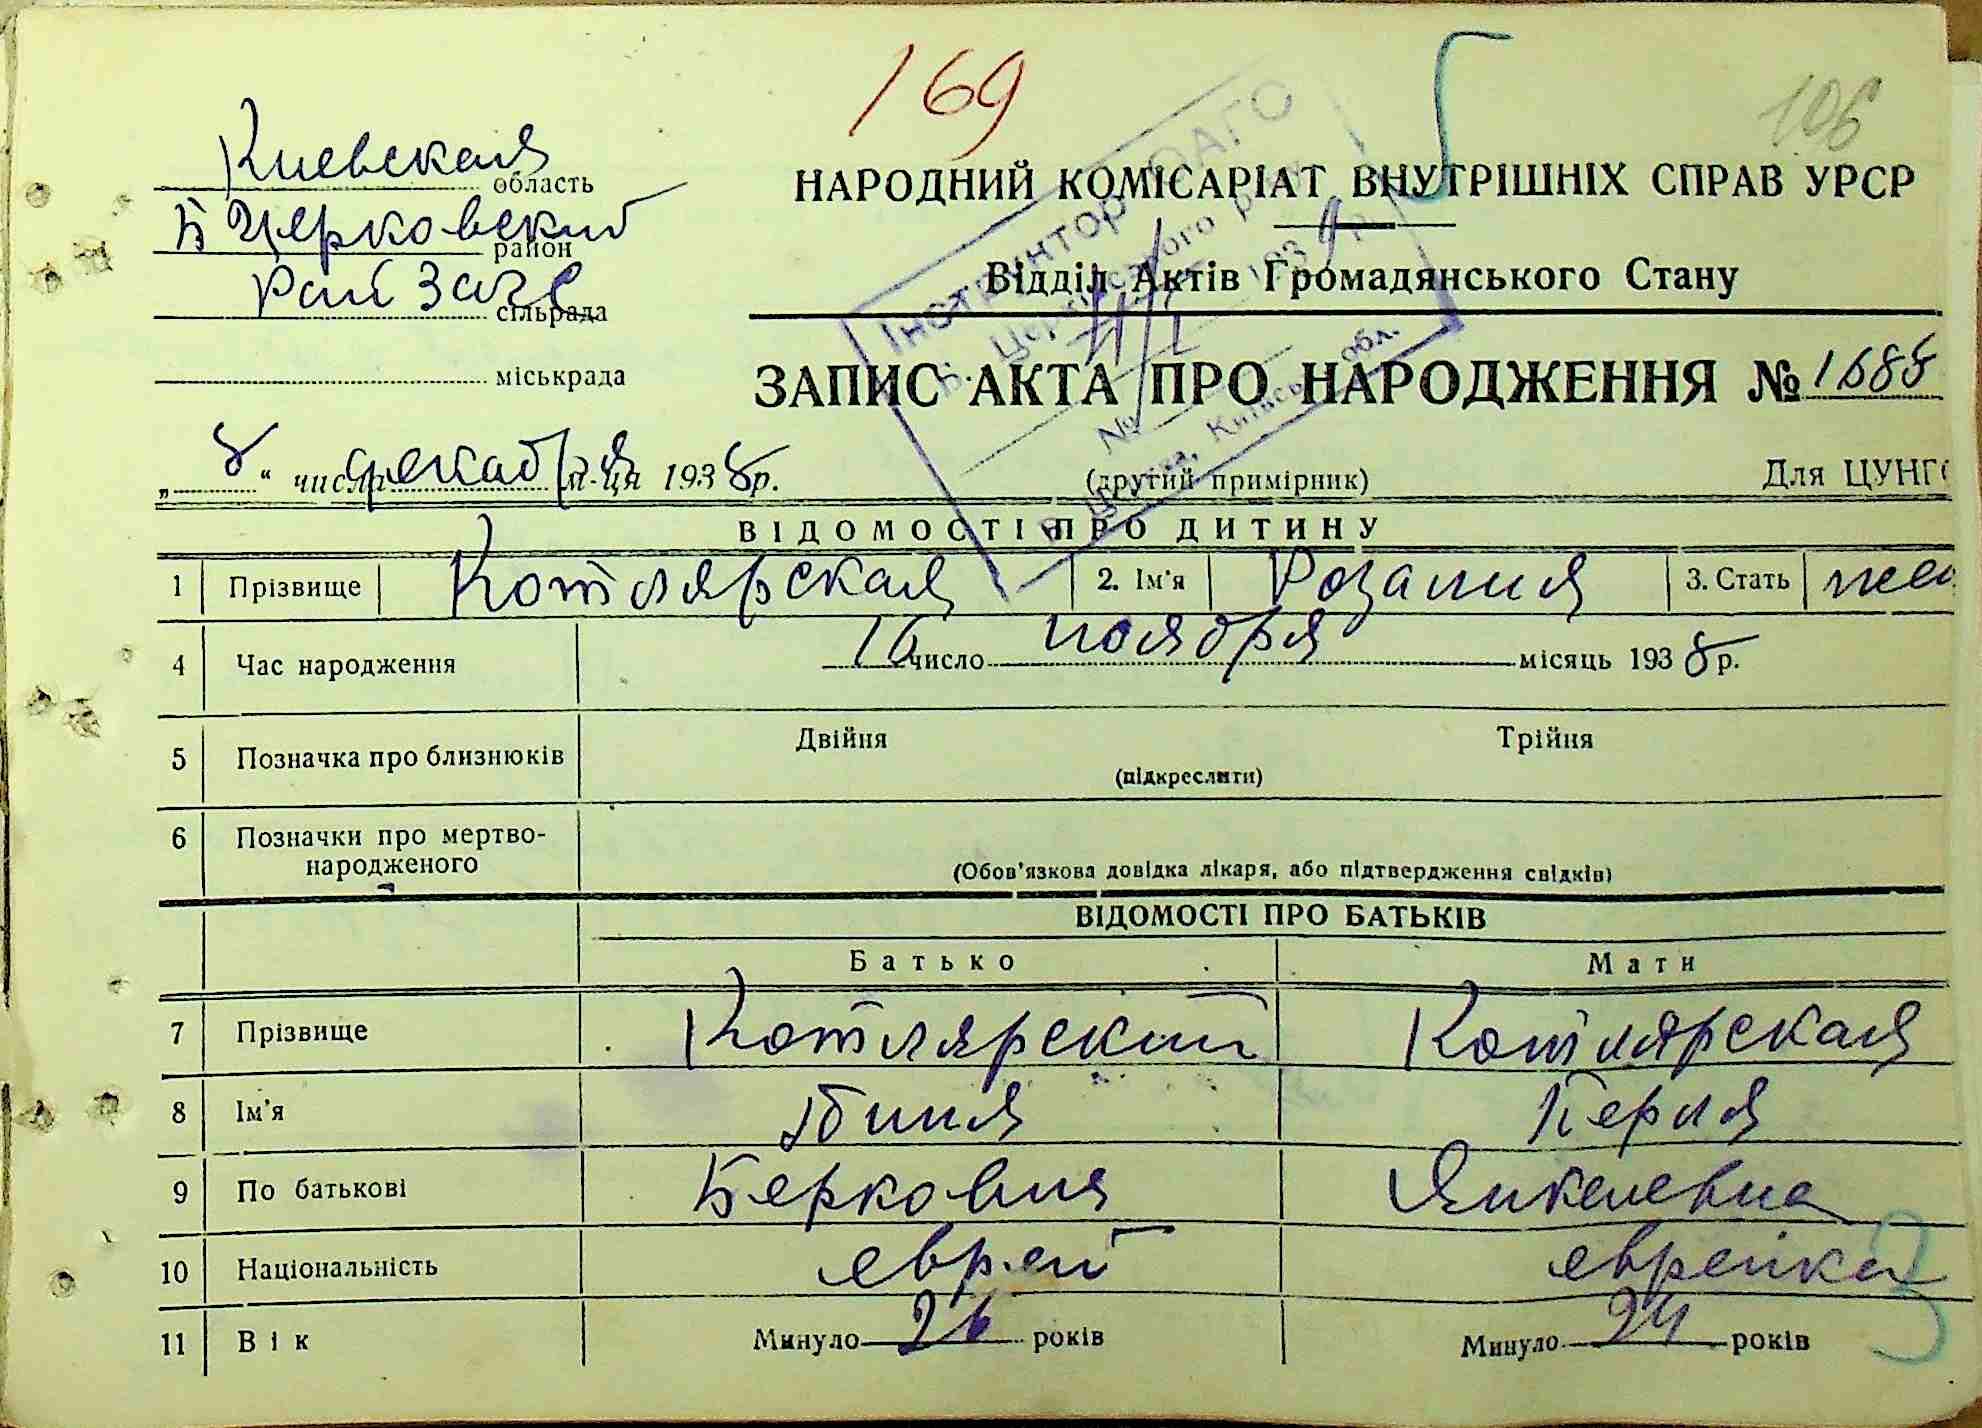 169
106
Киевская область
Б Церковский район
Рай Загс сільрада
міськрада
НАРОДНИЙ КОМІСАРІАТ ВНУТРІШНІХ СПРАВ УРСР
Відділ Актів Громадянського Стану
ЗАПИС АКТА ПРО НАРОДЖЕННЯ № 1585
„8“ числа декабря м-ця 1938 р.
(другий примірник)
Для ЦУНГО
Інспектор РАГО
Б. Церковського р-ну
193 9 р.
№
Б. Церква, Київськ. обл.
ВІДОМОСТІ ПРО ДИТИНУ
1 Прізвище Котлярская 2. Ім'я Розалия 3. Стать жен.
4 Час народження 16 число ноября місяць 1938 р.
5 Позначка про близнюків Двійня Трійня
(підкреслити)
6 Позначки про мертво-
народженого
(Обов'язкова довідка лікаря, або підтвердження свідків)
ВІДОМОСТІ ПРО БАТЬКІВ
Батько Мати
7 Прізвище Котлярский Котлярская
8 Ім'я Биня Перля
9 По батькові Беркович Янкелевна
10 Національність еврей еврейка
11 Вік Минуло 26 років Минуло 24 років